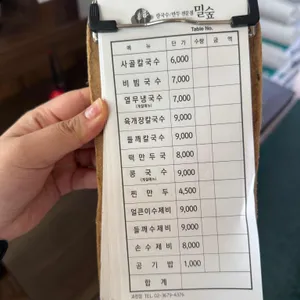 칼국수/만두 전문점 밀숲
Table No.
메 뉴 단 가 수량 금 액
사골칼국수 6,000
비빔국수 7,000
열무냉국수 7,000
(계절메뉴)
육개장칼국수 9,000
들깨칼국수 9,000
떡만두국 8,000
콩국수 9,000
(계절메뉴)
찐만두 4,500
얼큰이수제비 9,000
들깨수제비 9,000
손수제비 8,000
공기밥 1,000
합 계
TEL 02-3679-4374